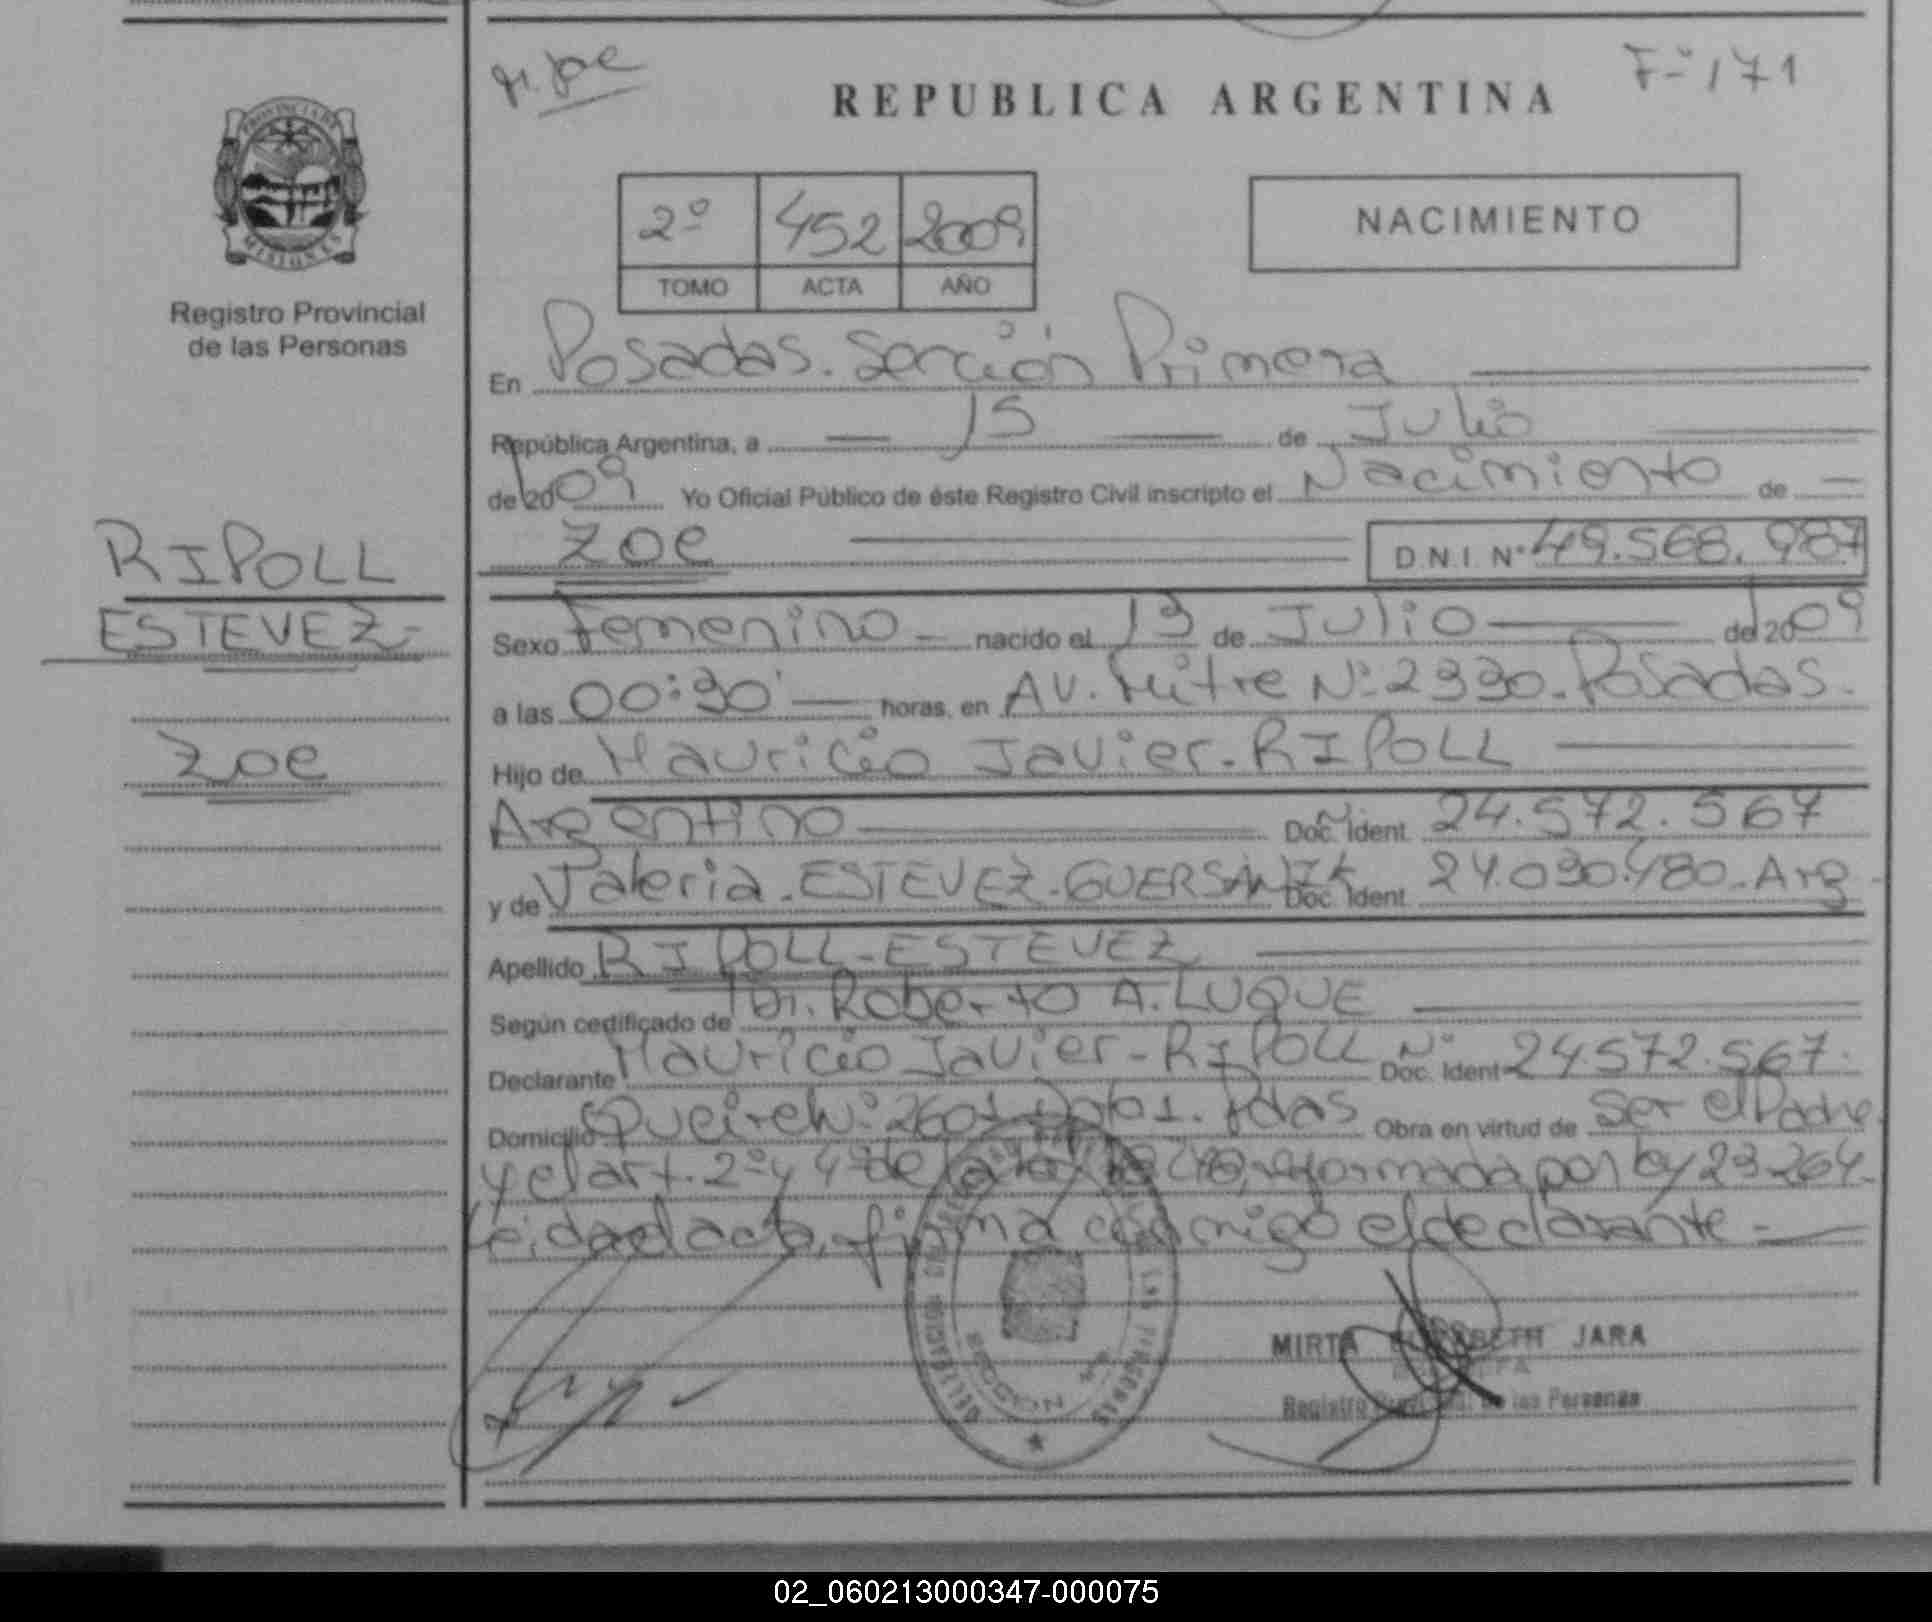 F-º 171
REPUBLICA ARGENTINA
PROVINCIA DE
MISIONES
Registro Provincial
de las Personas
2º 452 2009
TOMO ACTA AÑO
NACIMIENTO
En Posadas. Sección Primera
República Argentina, a 15 de Julio
de 2009 Yo Oficial Público de éste Registro Civil inscripto el Nacimiento de
Zoe D.N.I. Nº 49.568.987
RIPOLL
ESTEVEZ-
Zoe
Sexo Femenino nacido el 13 de Julio de 2009
a las 00:30 horas, en AV. Mitre Nº 2330. Posadas.
Hijo de Mauricio Javier. RIPOLL
Argentino Doc. Ident. Nº 24.572.567
y de Valeria. ESTEVEZ. Doc. Ident. 24.090.480. Arg
Apellido RIPOLL-ESTEVEZ
Según certificado de Dr. Roberto A. LUQUE
Declarante Mauricio Javier-RIPOLL Doc. Ident Nº 24.572.567.
Domicilio Obra en virtud de Ser el Padre
y el art. 2º y 4º de la reformada por ley 23.264.
Leída el acta, firma conmigo el declarante
MIRTA ELIZABETH JARA
JEFA
Registro Provincial de las Personas
02_060213000347-000075